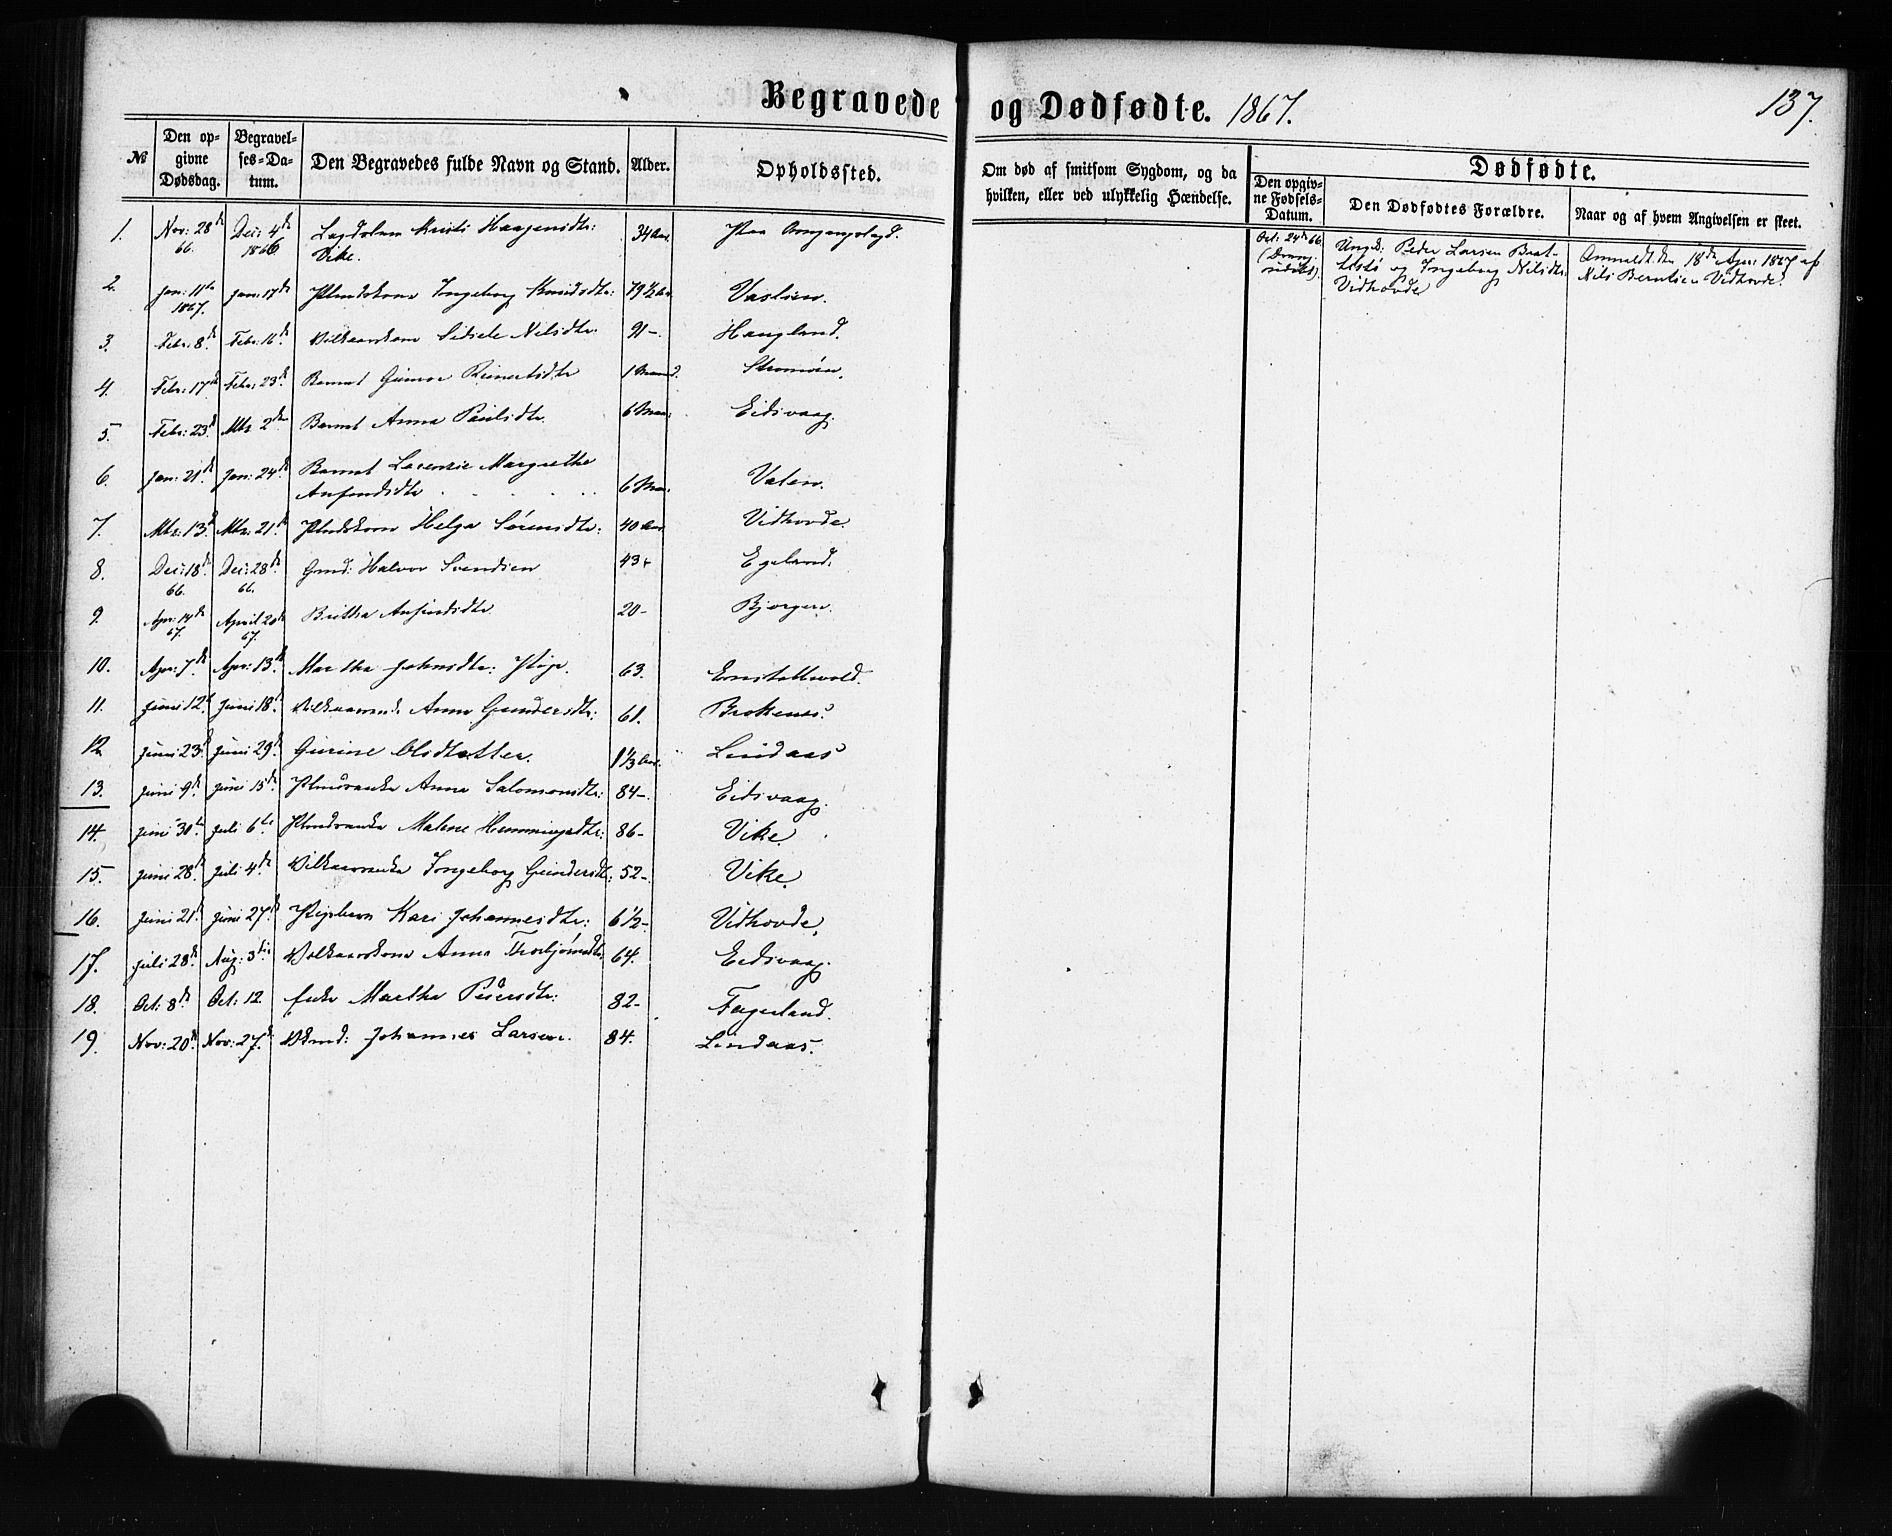 Begravede og Dødfødte. 1867. 137.
№ Den opgivne Dødsdag. Begravelses-Datum. Den Begravedes fulde Navn og Stand. Alder. Opholdssted. Om død af smitsom Sygdom, og da hvilken, eller ved ulykkelig Hændelse. Dødfødte.
Den opgivne Fødsels-Datum. Den Dødfødtes Forældre. Naar og af hvem Angivelsen er skeet.
1. Nov: 28de 66. Dec: 4de 1866 Kristi Haagensdtr: Vike. 34 Aar. Paa Omgangslægd.
Oct: 24de 66. Ungk. Peder Larsen
og Ingeborg Nilsdtr Vidhovde
Anmeldt den 18de Apr: 1867 af Nils Berntsen Vidhovde.
2. Jan: 11te 1867. Jan: 17de Ingeborg Knudsdtr: 79 1/2 Aar Vaslien.
3. Febr: 8de Febr: 16de Vilkaarskone Sidsele Nilsdtr: 91 - Haugland.
4. Febr: 17de Febr: 23de Barnet Gunvor Reinertsdtr 1 Maaned. Stremøen.
5. Febr: 23de Mts 2den Barnet Anna Paulsdtr. 6 Maan: Eidsvaag.
6. Jan: 21de Jan: 24de Barnet Lorenzie Margrethe Anfindsdtr 6 Maan. Valen.
7. Mts: 13de Mts: 21de Helga Sørensdtr: 40 Aar Vidhovde.
8. Dec: 18de 66. Dec: 28de 66. Gmd: Halvor Svendsen 43 - Egeland.
9. Apr: 14de 67. April 20de 67. Britha Anfindsdtr 20 - Bjorgen.
10. Apr: 7de Apr: 13de Martha Johnsdtr: Pige. 63.
11. Juni 12te Juni 18de Vilkaarsenke Anna Gundersdtr: 61. Brekenes.
12 Juni 23de Juni 29de Gurine Olsdatter. 1 1/3 Aar. Lindaas
13. Juni 9de Juni 15de Anna Salomonsdtr: 84 -. Eidsvaag.
14. Juni 30te Juli 6te Malene Hemmingsdtr: 86 - Vike.
15. Juni 28de Juli 4de Vilkaarsenke Ingeborg Gundersdtr: 52 -. Vike.
16. Juni 21de Juni 27de Pigebarn Kari Johannesdtr: 6 1/2 - Vidhovde.
17. Juli 28de Aug: 3die Vilkaarskone Anna Thorbjørnsdtr 64. Eidsvaag.
18. Oct: 8de Oct: 12. Enke Martha Pedersdtr: 82 - Fagerland.
19. Nov: 20de Nov: 27de Johannes Larsen. 84. Lindaas.